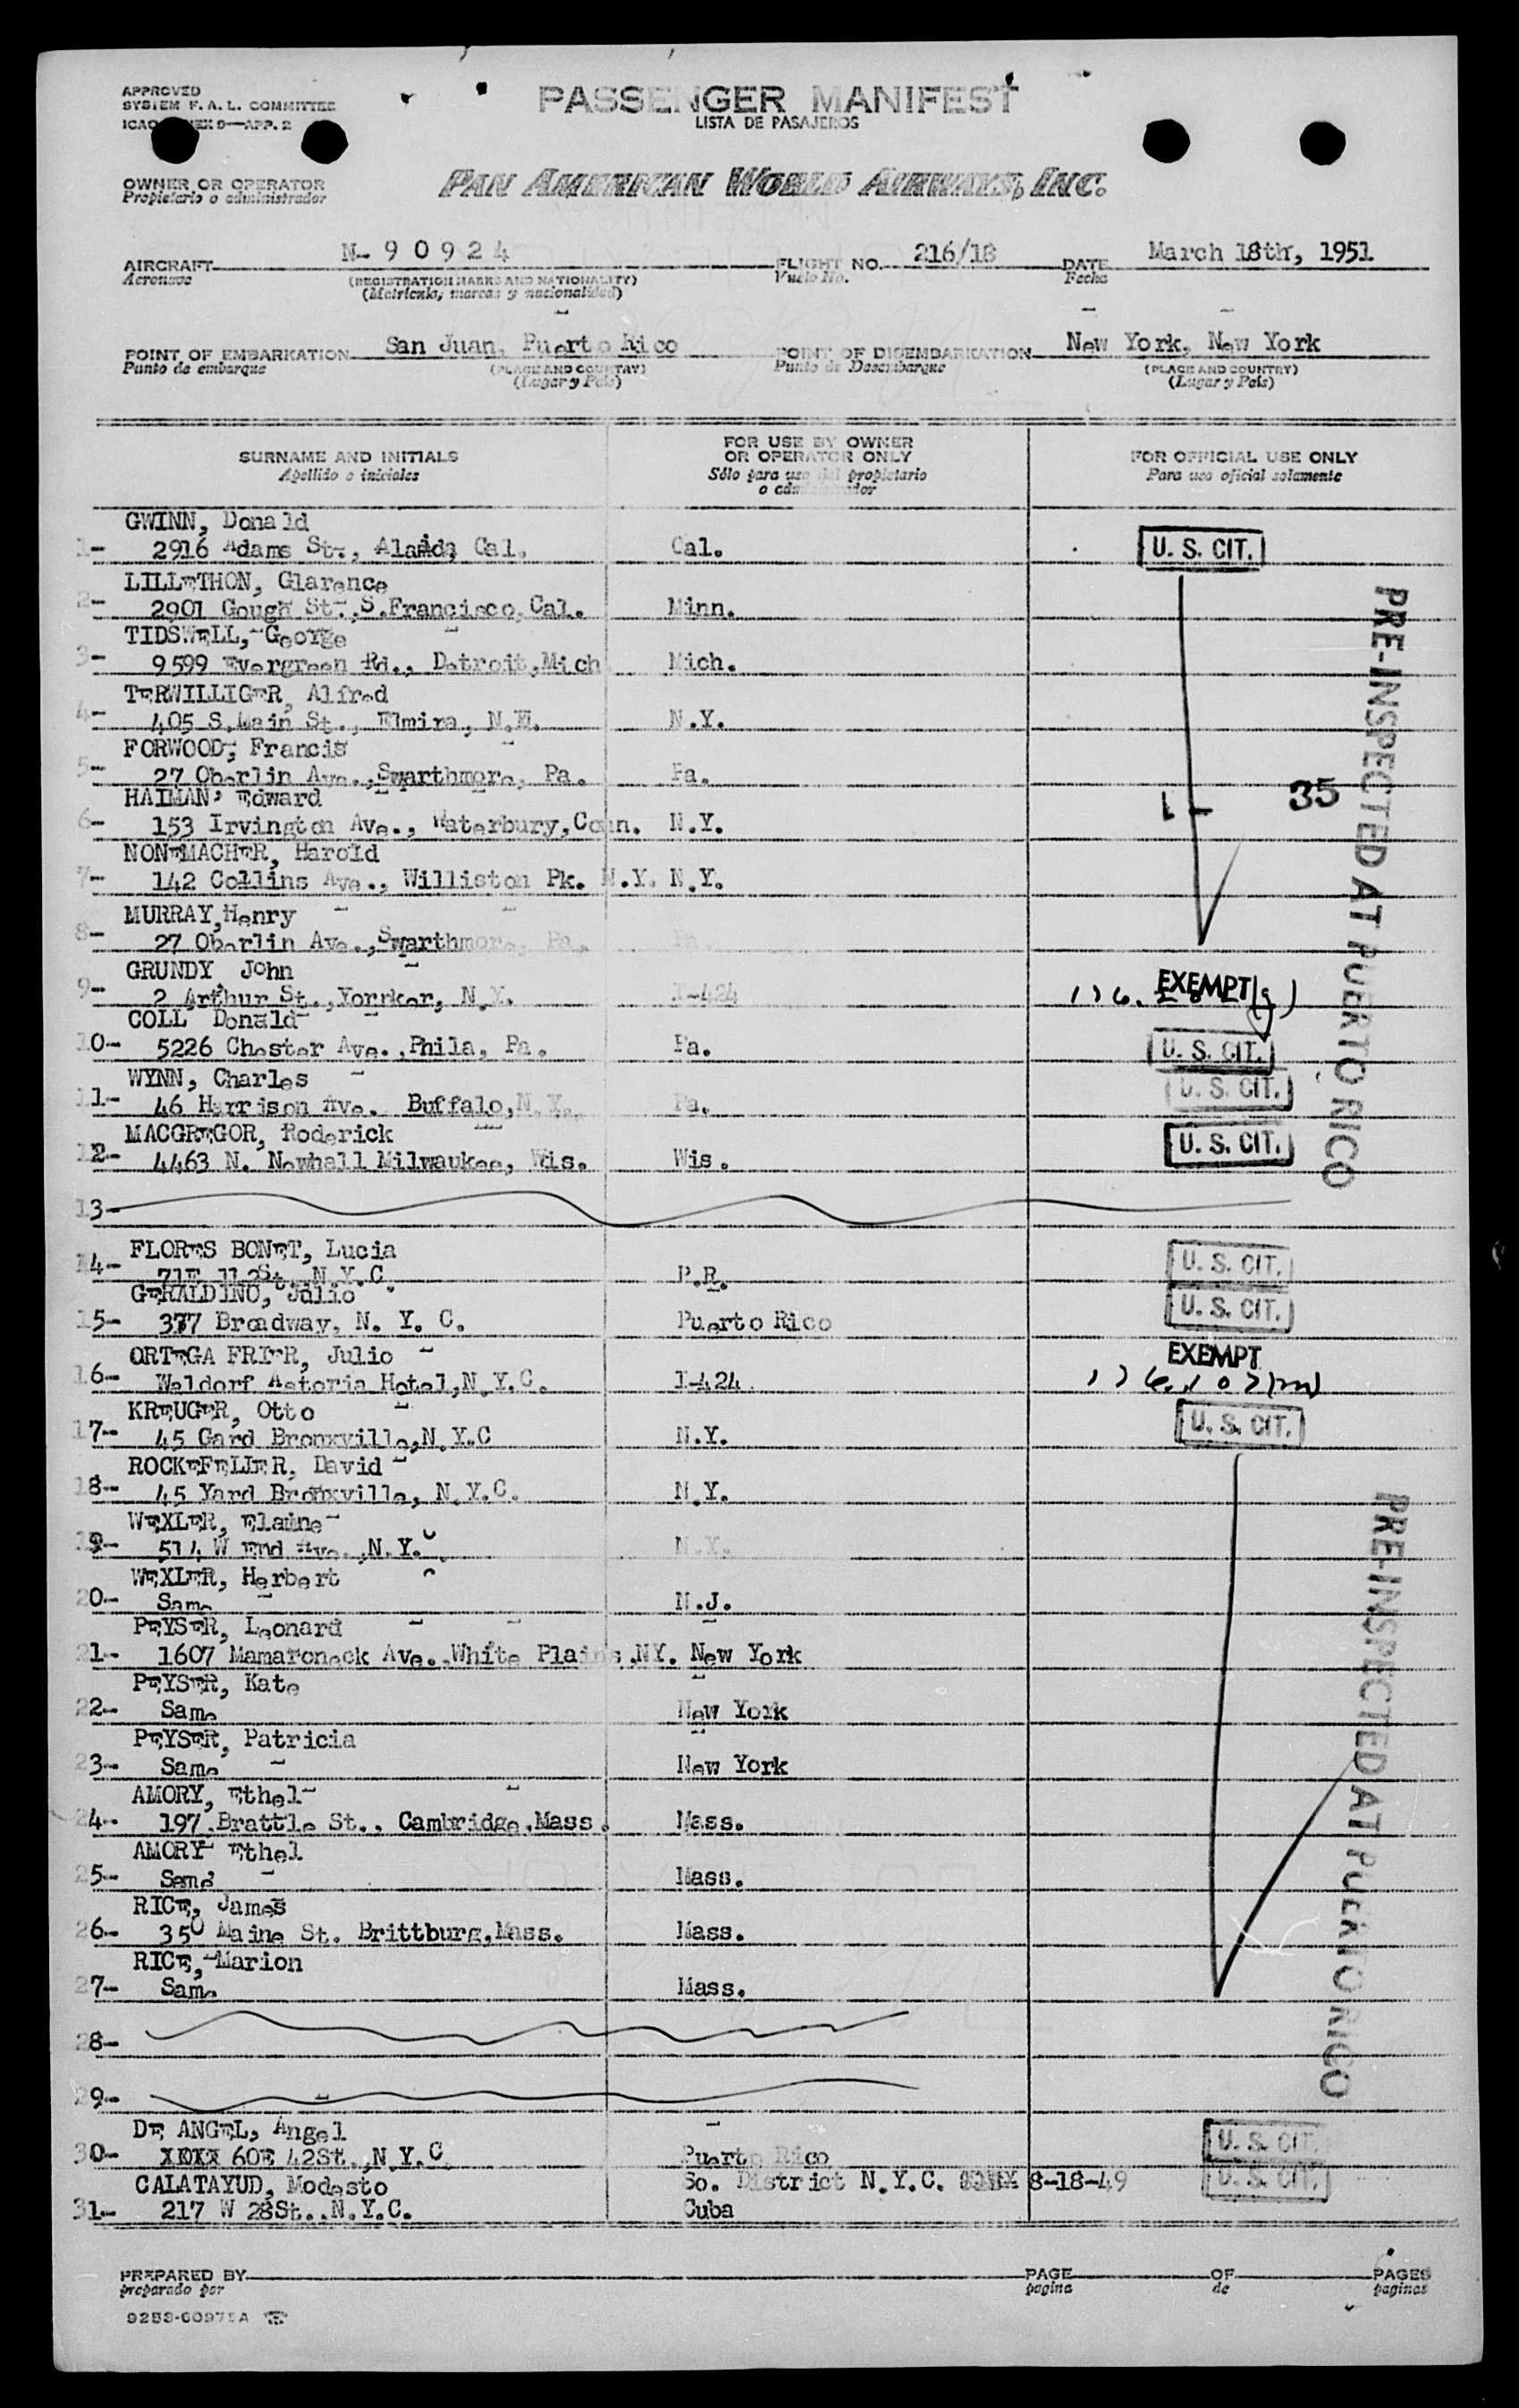 APPROVED
SYSTEM F. A. L. COMMITTEE
9—APP. 2
PASSENGER MANIFEST
LISTA DE PASAJEROS
OWNER OR OPERATOR
Propietario o administrador
PAN AMERICAN WORLD AIRWAYS, INC.
AIRCRAFT N- 9 0 9 2 4 FLIGHT NO. 216/18 DATE March 18th, 1951
Aeronave (REGISTRATION MARKS AND NATIONALITY) Vuelo No. Fecha
(Matricula, marcas y nacionalidad)
POINT OF EMBARKATION San Juan, Puerto Rico POINT OF DISEMBARKATION New York, New York
Punto de embarque (PLACE AND COUNTRY) Punto de Desembarque (PLACE AND COUNTRY)
(Lugar y País) (Lugar y País)
SURNAME AND INITIALS FOR USE BY OWNER OR OPERATOR ONLY FOR OFFICIAL USE ONLY
Apellido e iniciales Sólo para uso del propietario o administrador Para uso oficial solamente
GWINN, Donald
1- 2916 Adams St., Cal. Cal. U. S. CIT.
LILLETHON, Glarence
2- 2901 Gough St., S.Francisco, Cal. Minn.
TIDSWELL, George
3- 9599 Evergreen Rd., Detroit,Mich Mich.
TERWILLIGER, Alfred
4- 405 S.Main St., Elmira, N.Y. N.Y.
FORWOOD, Francis
5- 27 Oberlin Ave.,Swarthmore, Pa. Pa.
HAIMAN, Edward 35
6- 153 Irvington Ave., Waterbury,Conn. N.Y.
NONEMACHER, Harold
7- 142 Collins Ave., Williston Pk. N.Y. N.Y.
MURRAY,Henry
8- 27 Oberlin Ave.,Swarthmore, Pa. Pa.
GRUNDY John
9- 2 Arthur St.,Yonrker, N.Y. I-424 EXEMPT
COLL Donald
10- 5226 Chester Ave.,Phila, Pa. Pa. U. S. CIT.
WYNN, Charles
11- 46 Harrison Ave. Buffalo,N.Y. Pa. U. S. CIT.
MACGREGOR, Roderick
12- 4463 N. Newhall Milwaukee, Wis. Wis. U. S. CIT.
13-
FLORES BONET, Lucia
14- 71E 112St. N.Y.C. P.R. U. S. CIT.
GERALDINO, Julio
15- 377 Broadway, N. Y. C. Puerto Rico U. S. CIT.
ORTEGA FRIER, Julio EXEMPT
16- Waldorf Astoria Hotel,N.Y.C. I-424
KREUGER, Otto
17- 45 Gard Bronxville,N.Y.C N.Y. U. S. CIT.
ROCKEFELLER, David
18- 45 Yard Bronxville, N.Y.C. N.Y.
WEXLER, Elaine
19- 514 W End Ave.,N.Y.C. N.Y.
WEXLER, Herbert
20- Same N.J.
PEYSER, Leonard
21- 1607 Mamaroneck Ave.,White Plains,NY. New York
PEYSER, Kate
22- Same New York
PEYSER, Patricia
23- Same New York
AMORY, Ethel
24- 197 Brattle St., Cambridge,Mass. Mass.
AMORY Ethel
25- Same Mass.
RICE, James
26- 350 Maine St. Brittburg,Mass. Mass.
RICE, Marion
27- Same Mass.
28-
29-
DE ANGEL, Angel
30- 60E 42St.,N.Y.C Puerto Rico U. S. CIT.
CALATAYUD, Modesto So. District N.Y.C. 8-18-49 U. S. CIT.
31- 217 W 28St.,N.Y.C. Cuba
PRE-INSPECTED AT PUERTO RICO
PRE-INSPECTED AT PUERTO RICO
PREPARED BY PAGE OF PAGES
preparado por pagina de paginas